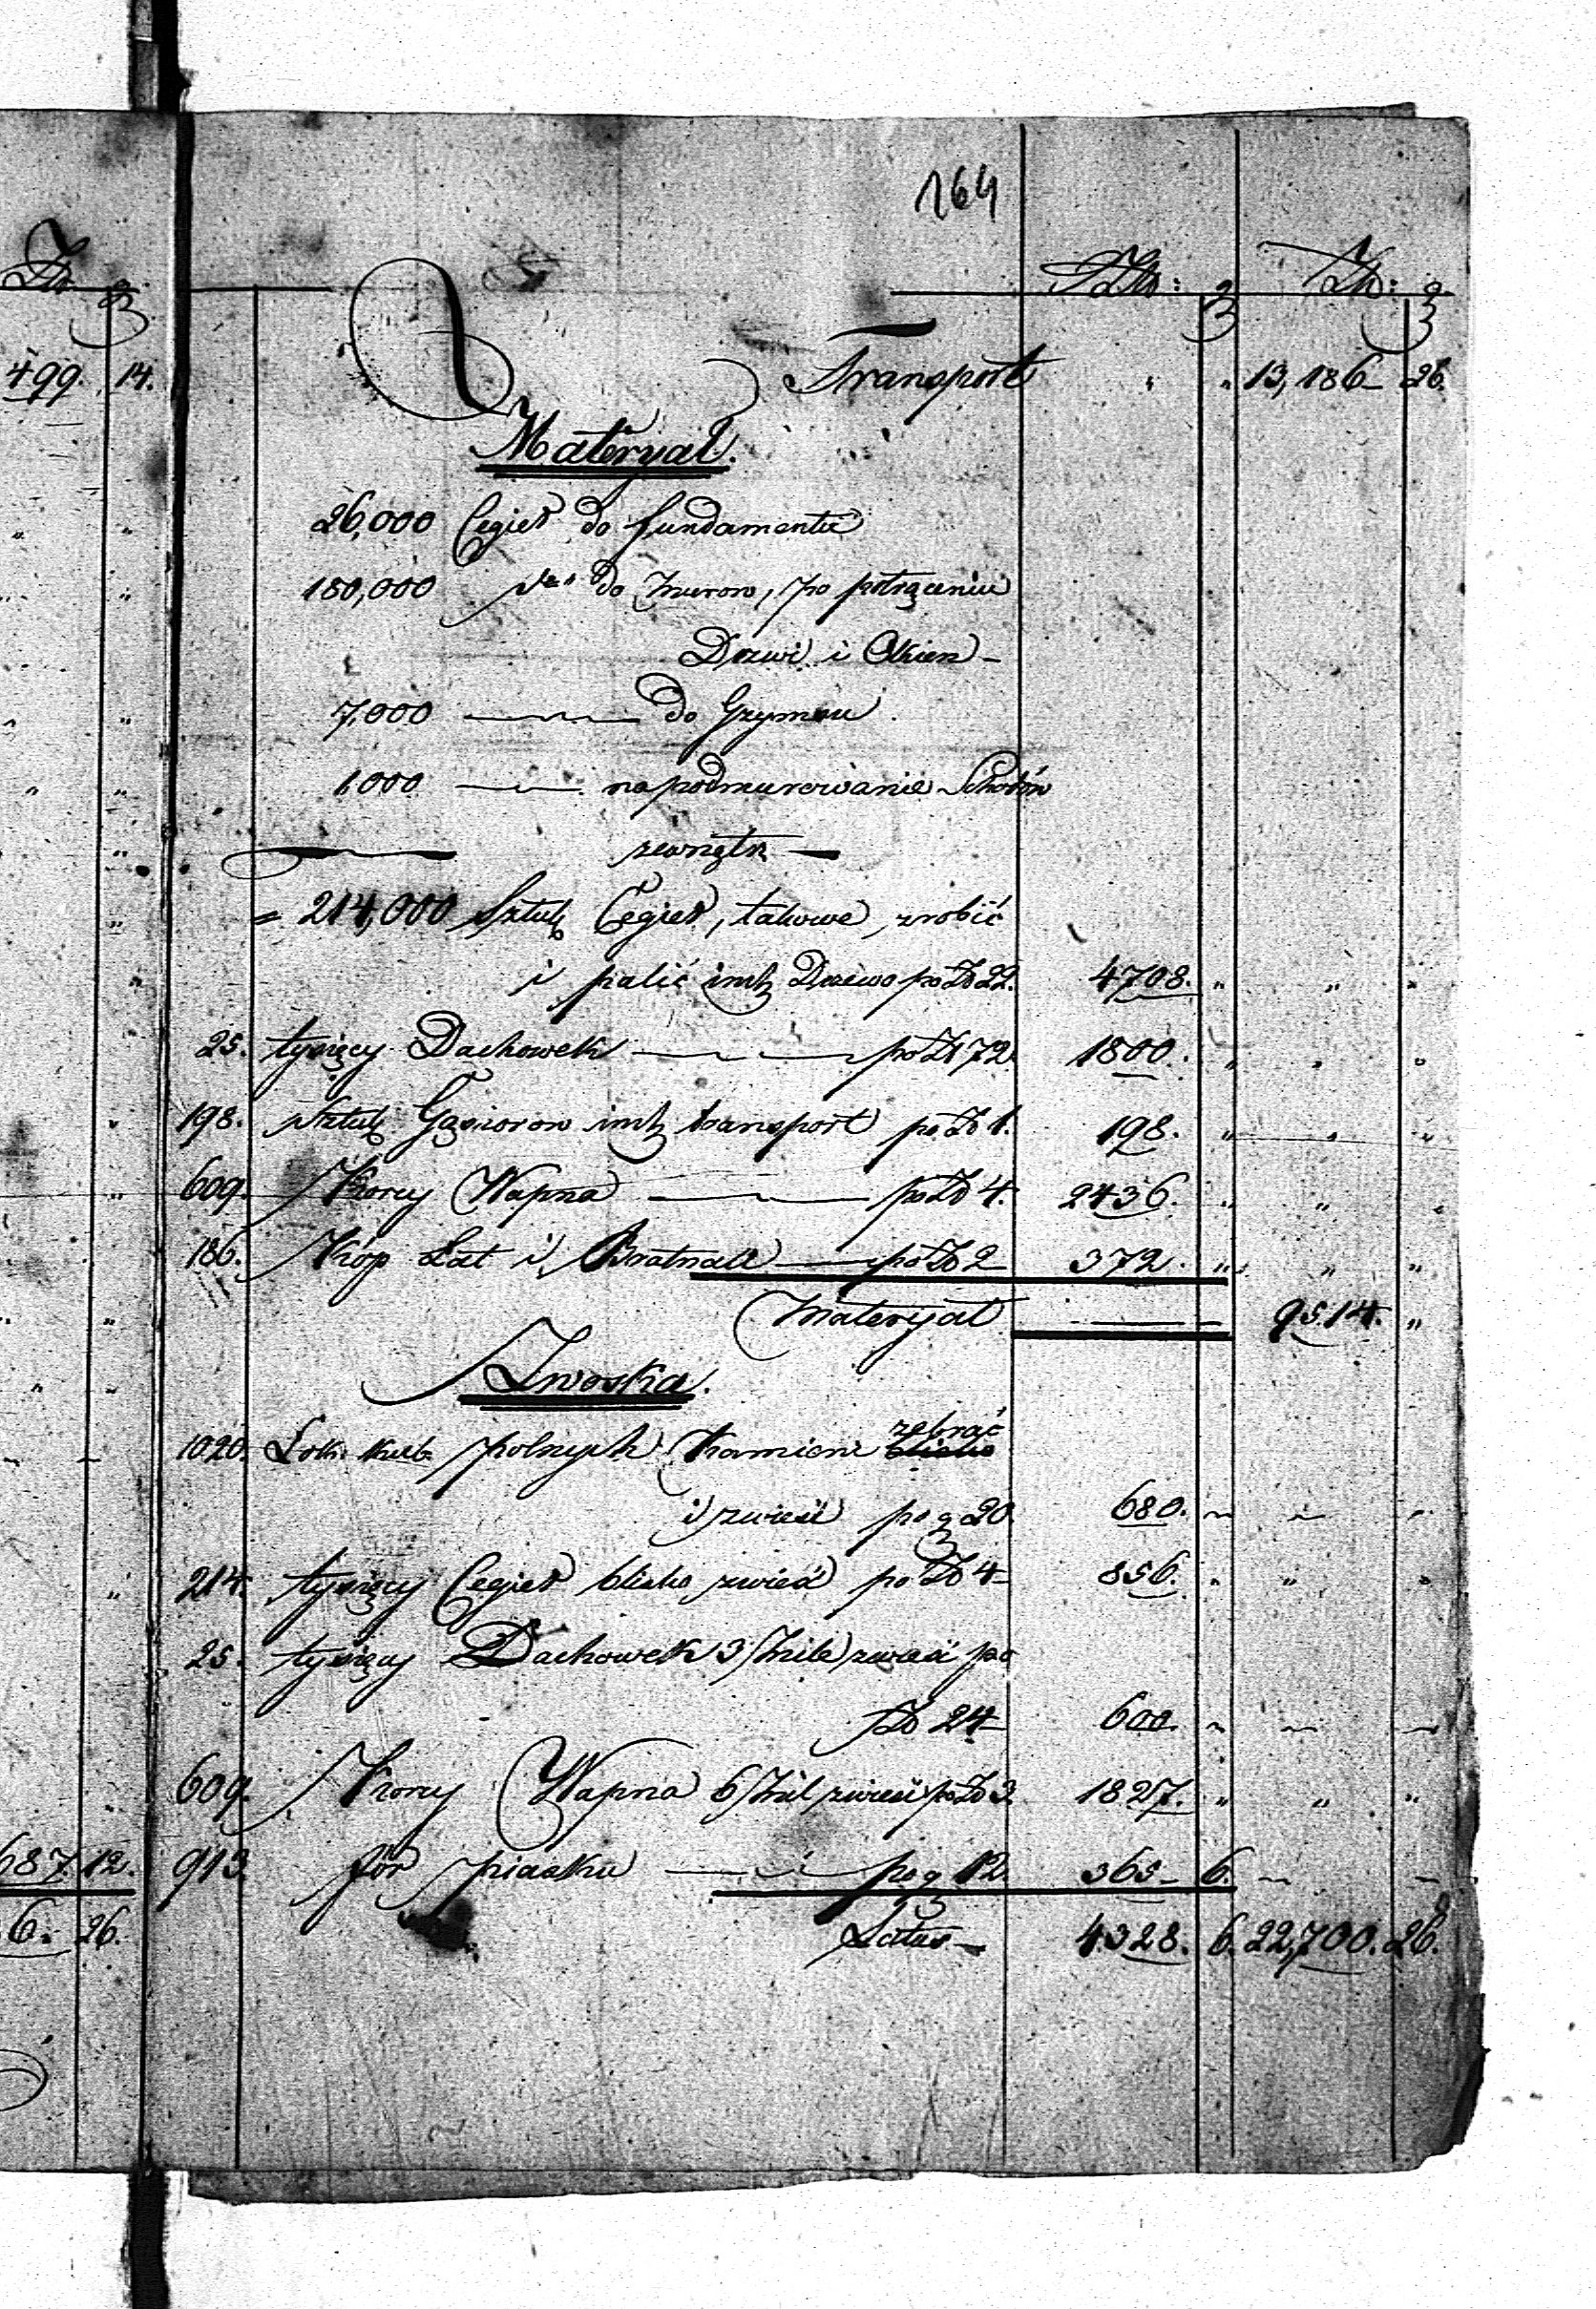 164
Zło: g Zło: g
Transport " " 13,186 26.
Materyał.
26,000 Cegieł do fundamentu
180,000 do murow, po potrąceniu
Drzwi i Okien
7,000 do Gzymsu
1,000 na podmurowanie Schodów
zewnątz
= 214,000 Sztuk Cegieł, takowe zrobić
i palić Drzewo po Zł 22. 4708. " " "
25. tysięcy Dachowek po Zł 72. 1800. " " "
198. Sztuk Gąsiorow transport po Zł 1. 198. " " "
609. Korcy Wapna po Zł 4. 2436. " " "
186. Kóp Łat i Bratnali po Zł 2 372. " " "
Materyał 9514. "
Zwoska.
1020. Łok. kub. polnych Kamieni zebrać
i zwieść po g 20 680.
214. tysięcy Cegieł blisko zwieść po Zł 4 856. " " "
25. tysięcy Dachowek 3 Mile zwieść po
Zł 24 600.
609. Korcy Wapna 6 Mil zwieść po Zł 3. 1827. " " "
913. fór piasku po g 12. 365 6.
Latus 4328. 6. 22,700. 26.
499. 14.
687 12.
6. 26.